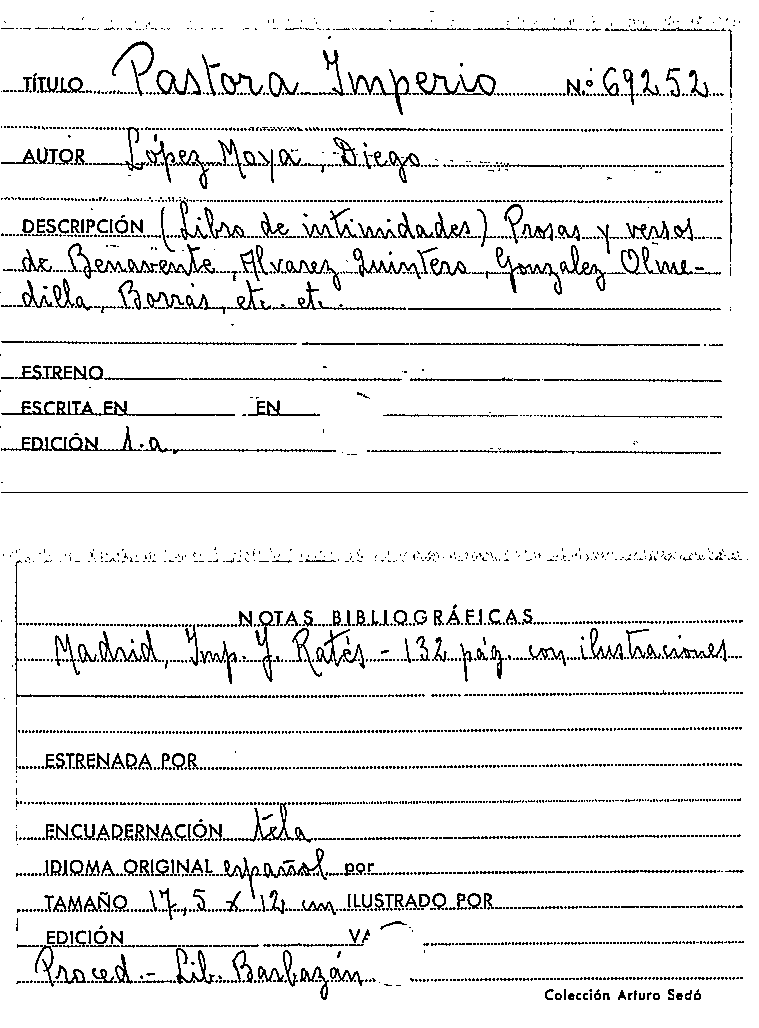 TÍTULO Pastora Imperio N.º 69252
AUTOR López Moya, Diego
DESCRIPCIÓN (Libro de intimidades) Prosas y versos
de Benavente, Alvarez Quintero, Gonzalez Olme-
dilla, Borrás, etc. etc.
ESTRENO
ESCRITA EN EN
EDICIÓN 1.a
NOTAS BIBLIOGRÁFICAS
Madrid, Imp. J. Ratés - 132 pág. con ilustraciones
ESTRENADA POR
ENCUADERNACIÓN tela
IDIOMA ORIGINAL español por
TAMAÑO 17,5 x 12 cm ILUSTRADO POR
EDICIÓN
Proced.- Lib. Barbazán
Colección Arturo Sedó